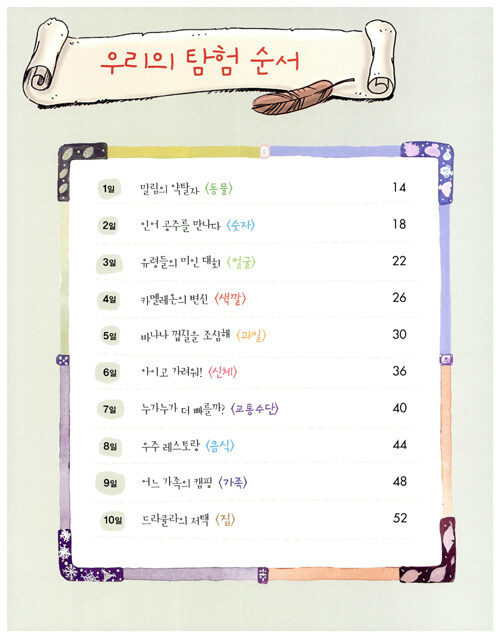 우리의 탐험 순서
1일 밀림의 약탈자 〈동물〉 14
2일 인어 공주를 만나다 〈숫자〉 18
3일 유령들의 미인 대회 〈얼굴〉 22
4일 카멜레온의 변신 〈색깔〉 26
5일 바나나 껍질을 조심해 〈과일〉 30
6일 아이고 가려워! 〈신체〉 36
7일 누가누가 더 빠를까? 〈교통수단〉 40
8일 우주 레스토랑 〈음식〉 44
9일 어느 가족의 캠핑 〈가족〉 48
10일 드라큘라의 저택 〈집〉 52